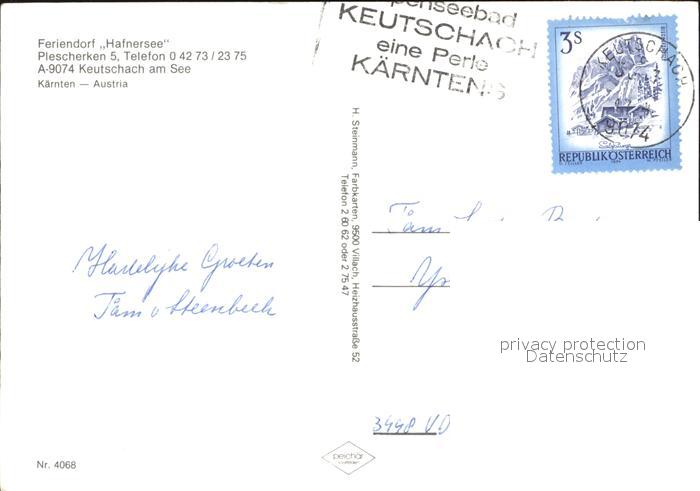 Feriendorf „Hafnersee“
Plescherken 5, Telefon 0 42 73 / 23 75
A-9074 Keutschach am See
Kärnten — Austria
penseebad
KEUTSCHACH
eine Perle
KÄRNTENS
3S
KEUTSCHACH
9074
REPUBLIK ÖSTERREICH
H. Steinmann, Farbkarten, 9500 Villach, Heizhausstraße 52
Telefon 2 60 62 oder 2 75 47
Hartelijke Groeten
Fam v Steenbeek
Fam
3448 VD
privacy protection
Datenschutz
Nr. 4068